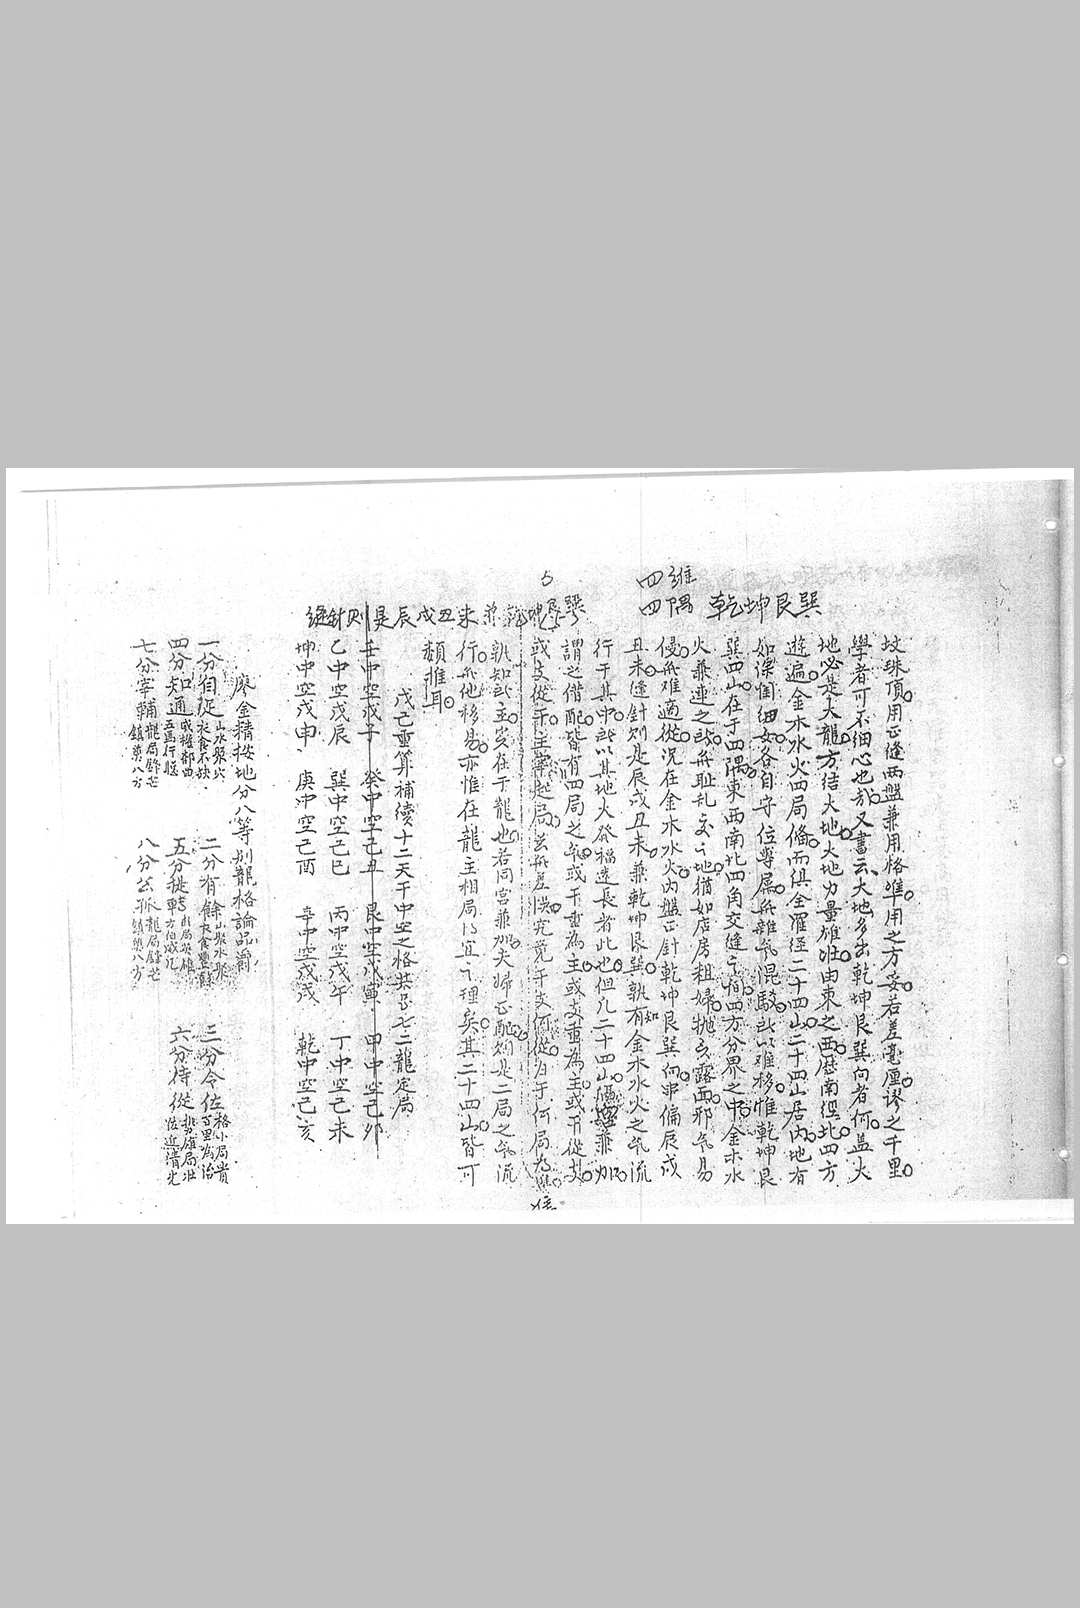 巽艮坤乾
四維
四隅
蚊珠頂用正縫兩盤兼用格準用之方妥若差毫厘謬之千里
學者可不細心也哉又書云大地多出乾坤艮巽向者何盖大
地必是大龍方結大地大地力量雄壯由東之西歷南徑北四方
遊遍金木水火四局俻而俱全羅徑二十四山二十四山居内地有
如深閨細女各自守位專屬無雜氣混駁所以難移惟乾坤艮
巽四山在于四隅東西南北四角交縫之間四方分界之中金木水
火兼連之所無耻乱交之地猶如店房粗婦拋衣露面邪气易
侵無难適從况在金木水火内盤正針乾坤艮巽向即偏辰戍
丑未縫針則是辰戍丑未兼乾坤艮巽孰知有金木水火之气流
行于其中所以其地火發福迭長者此也但凡二十四山兼加
謂之借配皆有四局之气或干重為主或支重為主或干從支
或支從干主塟起局玄無差悮究竟干支何從归于何局為準
孰知所主实在于龍也若同宮兼加夫婦正配則是二局之气流
行無他移易亦惟在龍主相局得宜之理矣其二十四山皆可
類推耳
5
巽艮坤乾兼未丑戍辰是則針縫
戊己重算補續十二天干中空之格共足七十二龍定局
壬中空戊子 癸中空己丑 艮中空戊寅 甲中空己卯
乙中空戊辰 巽中空己巳 丙中空戊午 丁中空己未
坤中空戊申 庚中空己酉 辛中空戊戍 乾中空己亥
廖金精按地分八等別龍格論品爵
一分自從山水聚穴衣食不缺 二分有餘山聚水聚衣食豐 三分令佐格小局貴百里為治
四分知通或擁都曲五馬行 五分從軒局眾雄方伯 六分侍從勢雄局壯佐近清光
七分宰輔龍局鎮八方 八分龍局八方